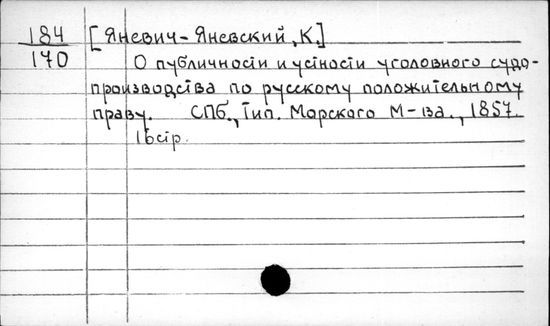 184 [Яневич-Яневский, К.]
170 О публичности и устности уголовного судо-
производства по русскому положительному
праву. СПб., Тип. Морского М-ва., 1857.
16 стр.